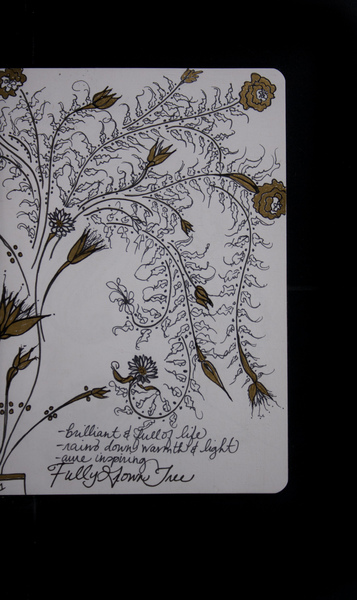 -brilliant & full of life
-rains down warmth & light
-awe inspiring
Fully Grown Tree